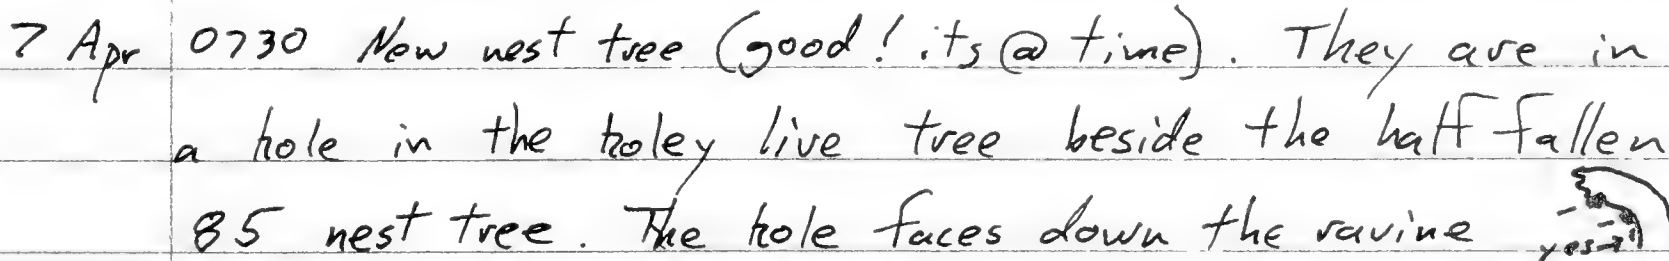 7 Apr 0730 New nest tree (good! its @ time). They are in
a hole in the holey live tree beside the half fallen
85 nest tree. The hole faces down the ravine
yes→